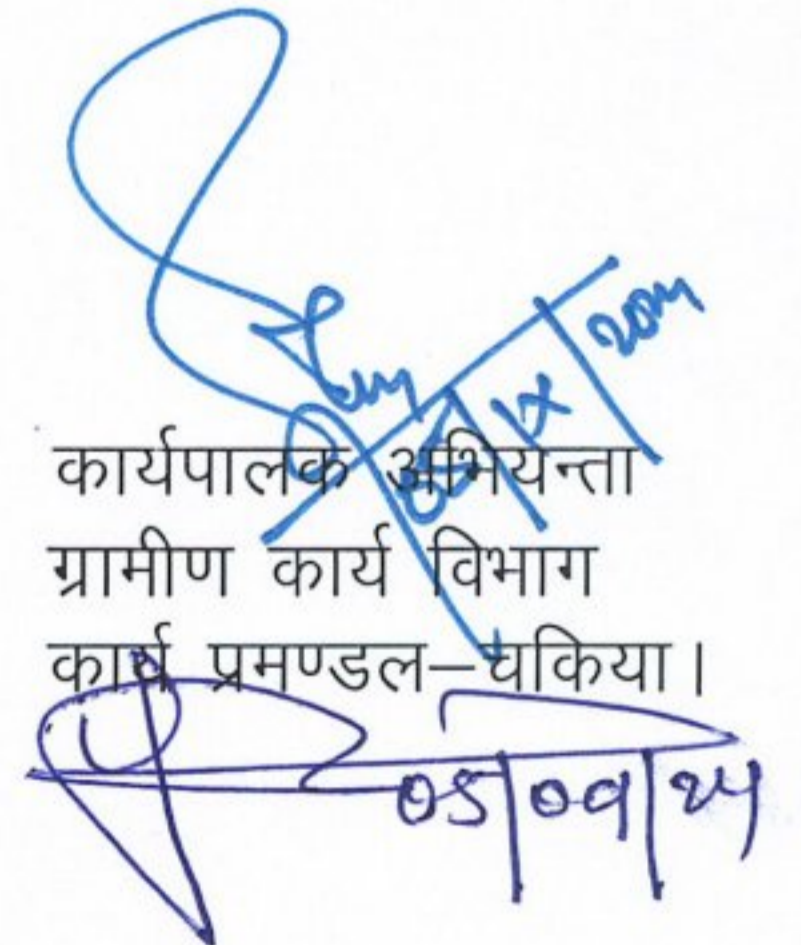 कार्यपालक अभियन्ता
ग्रामीण कार्य विभाग
कार्य प्रमण्डल–चकिया।
05|09|24